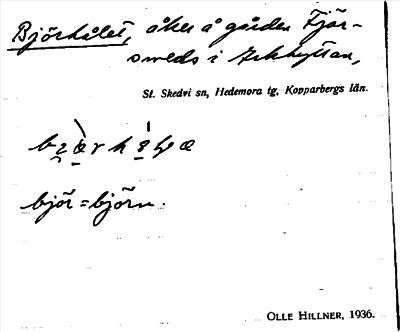 Björhålet, åker å gården Fjör-
sweds i Arkhyttan,
St. Skedvi sn, Hedemora tg, Kopparbergs län.
björ = björn.
OLLE HILLNER, 1936.